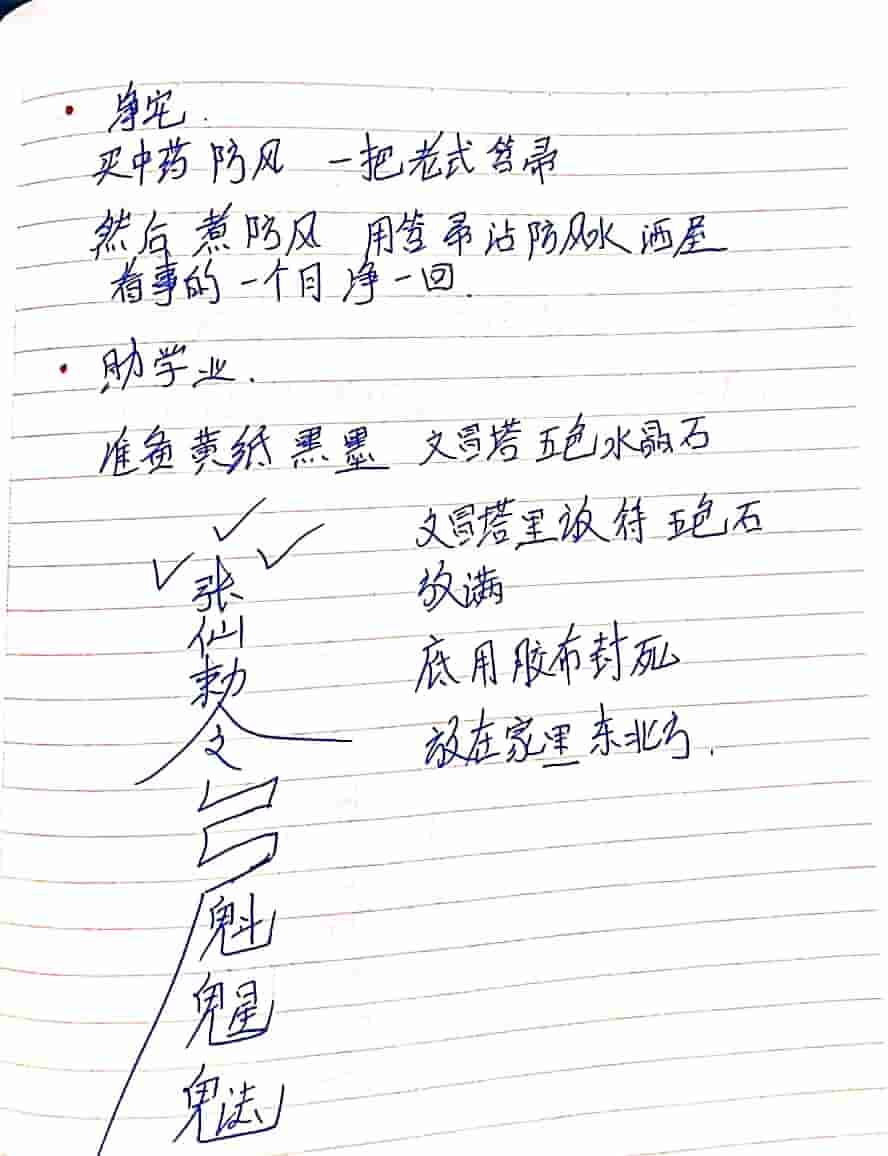 净宅.
买中药 防风 一把老式笤帚
然后煮防风 用笤帚沾防风水洒屋
看事的一个月净一回.
助学业.
准备黄纸黑墨 文昌塔五色水晶石
文昌塔里放符五色石
放满
底用胶布封死
放在家里东北方.
张
仙
敕
令
文
魁